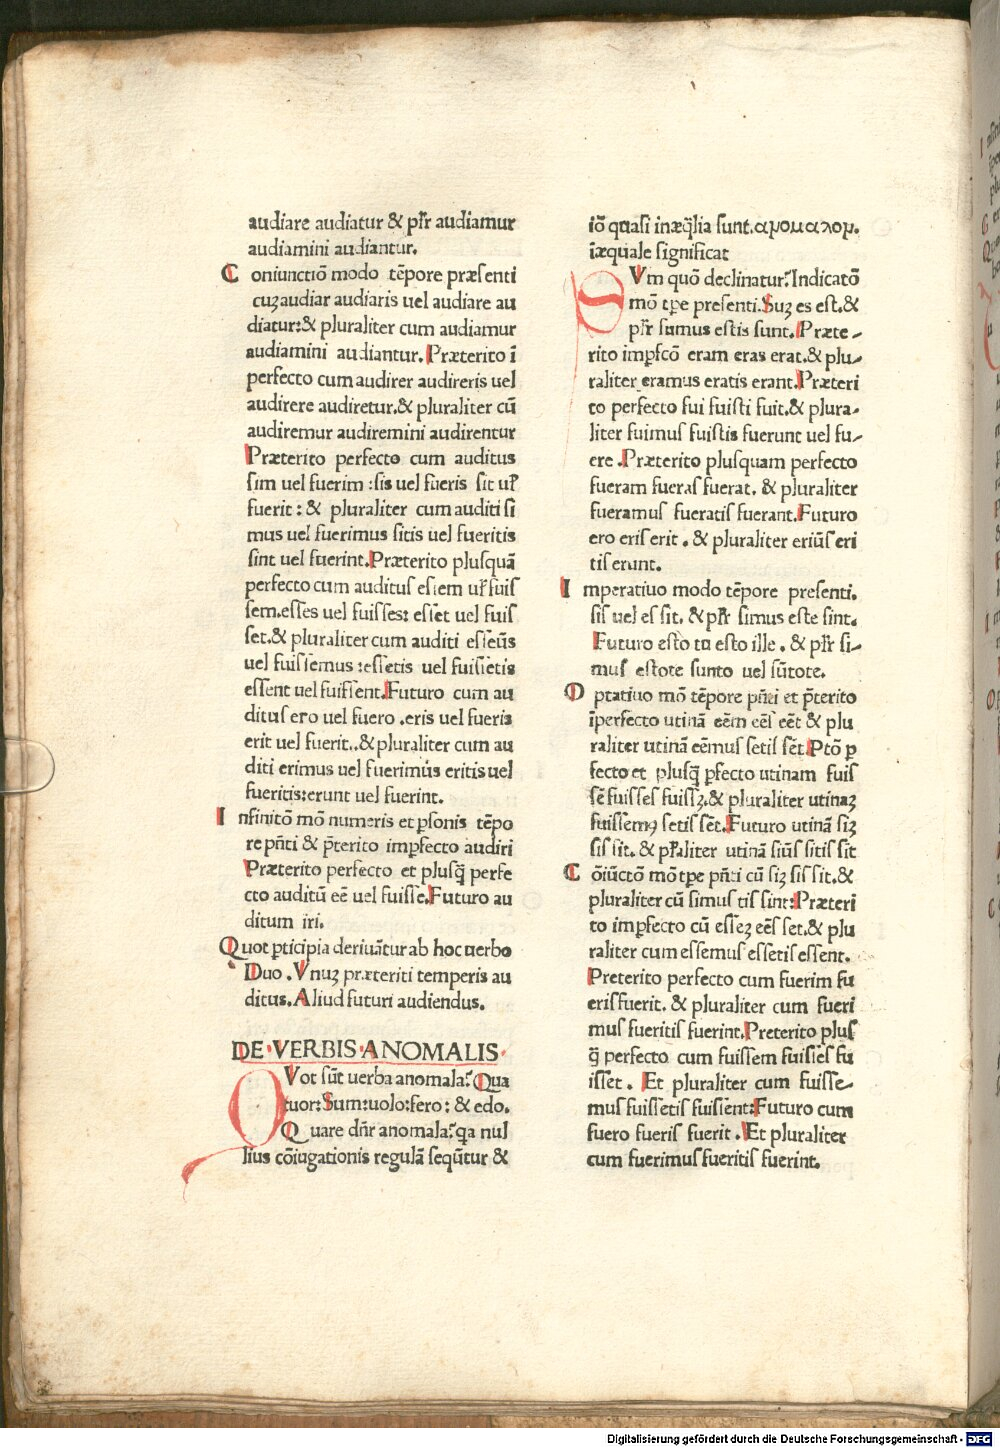 audiare audiatur & pl̄r audiamur
audiamini audiantur.
Coniunctiō modo tēpore præsenti
cuꝫ audiar audiaris uel audiare au
diatur:& pluraliter cum audiamur
audiamini audiantur. Præterito ī
perfecto cum audirer audireris uel
audirere audiretur.& pluraliter cū
audiremur audiremini audirentur
Præterito perfecto cum auditus
sim uel fuerim :sis uel fueris sit ul̄
fuerit : & pluraliter cum auditi si
mus uel fuerimus sitis uel fueritis
sint uel fuerint.Præterito plusquā
perfecto cum auditus essem ul̄ fuis
sem.esses uel fuisses: esset uel fuis
set.& pluraliter cum auditi essēus
uel fuissemus :essetis uel fuissetis
essent uel fuissent.Futuro cum au
ditus ero uel fuero .eris uel fueris
erit uel fuerit..& pluraliter cum au
diti erimus uel fuerimus eritis uel
fueritis:erunt uel fuerint.
Infinitō mō numeris et ꝑsonis tēpo
re pn̄ti & p̄terito imꝑfecto audiri
Præterito perfecto et plusq̄ perfe
cto auditū eē uel fuisse.Futuro au
ditum iri.
Quot ꝑticipia deriuātur ab hoc uerbo
Duo .Vnuꝫ præteriti temperis au
ditus.Aliud futuri audiendus.
DE VERBIS ANOMALIS
QVot sūt uerba anomala? Qua
tuor:Sum:uolo:fero : & edo.
Quare dn̄r anomala? qa nul
lius cōiugationis regulā sequūtur &
iō quasi inæq̄lia sunt.αμομαλομ.
īæquale significat
SVm quō declinatur? Indicatō
mō tꝑe presenti.Suꝫ es est.&
pl̄r sumus estis sunt.Præte-
rito imꝑfcō eram eras erat.& plu-
raliter eramus eratis erant.Præteri
to perfecto fui fuisti fuit.& plura-
liter fuimus fuistis fuerunt uel fu-
ere .Præterito plusquam perfecto
fueram fueras fuerat. & pluraliter
fueramus fueratis fuerant.Futuro
ero eris erit . & pluraliter erimūs eri
tis erunt.
Imperatiuo modo tēpore presenti.
sis uel es sit. & pl̄r simus este sint.
Futuro esto tu esto ille . & pl̄r si-
mus estote sunto uel sūtote.
Optatiuo mō tēpore pn̄ti et p̄terito
īperfecto utinā eēm eēs eēt & plu
raliter utinā eēmus setis sēt.Ptō ꝑ
fecto et plusq̄ ꝑfecto utinam fuis
sē fuisses fuissꝫ.& pluraliter utinaꝫ
fuissemꝰ setis sēt.Futuro utinā siꝫ
sis sit. & pl̄aliter utinā siūs sitis sit
Cōiūctō mō tꝑe pn̄ti cū siꝫ sis sit.&
pluraliter cū simus tis sint:Præteri
to imꝑfecto cū esseꝫ eēs set.& plu
raliter cum essemus essetis essent.
Preterito perfecto cum fuerim fu
eris fuerit. & pluraliter cum fueri
mus fueritis fuerint.Preterito plus
q̄ perfecto cum fuissem fuisses fu
isset . Et pluraliter cum fuisse-
mus fuissetis fuissent:Futuro cum
fuero fueris fuerit .Et pluraliter
cum fuerimus fueritis fuerint.
Digitalisierung gefördert durch die Deutsche Forschungsgemeinschaft - DFG